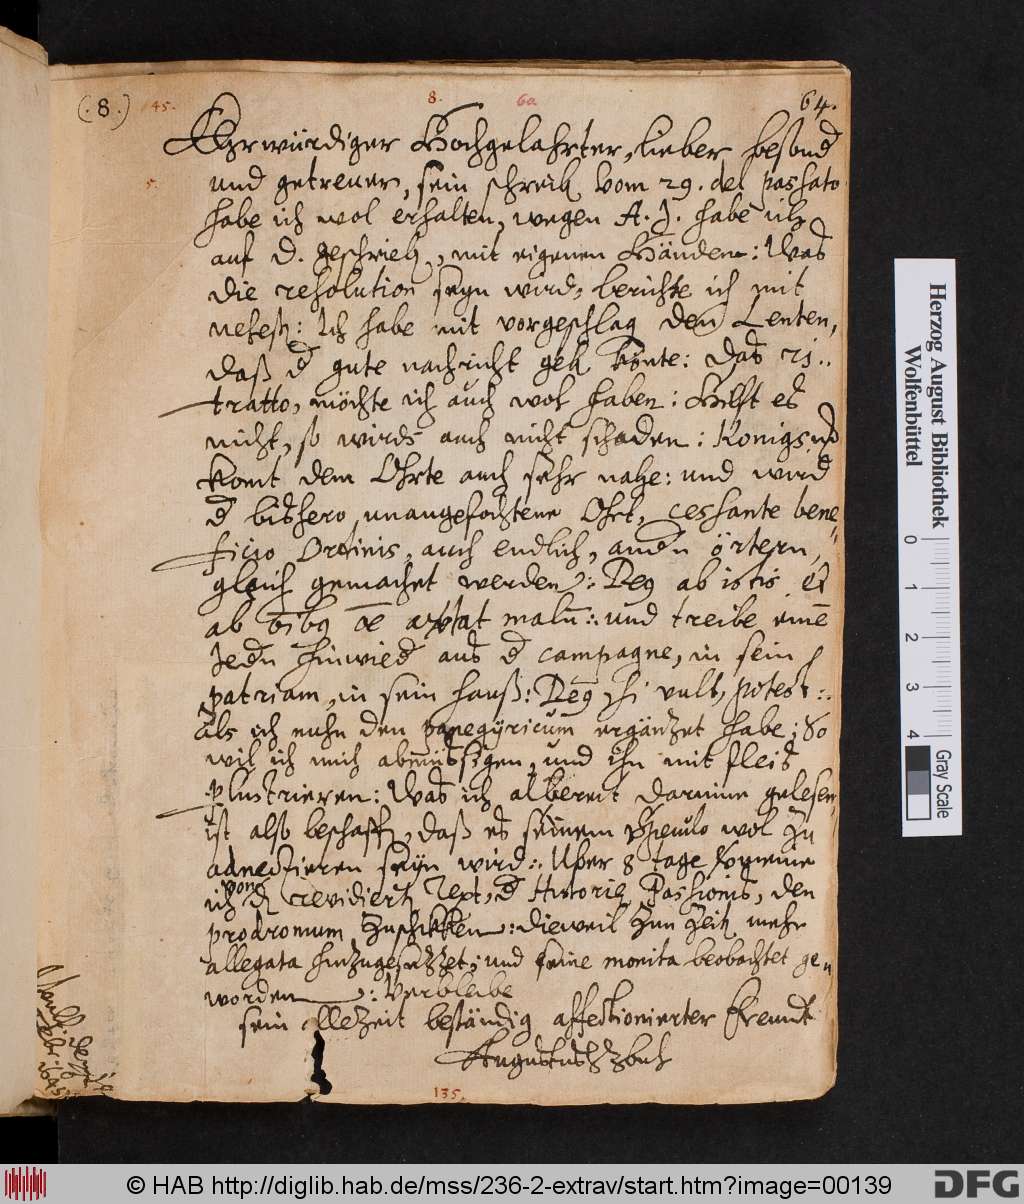 (.8.) 45. 8. 60 64.
Ehrwürdiger Hochgelahrter, lieber besond
5. und getreuer, sein schreib. vom 29. del passato
habe ich wol erhalten, wegen A. J. habe ich
auf d. geschrieb., mit eigenen Händen: Was
die resolution seyn wird, berichte ich mit
nehest: Ich habe mit vorgeschlag den Leuten,
daß d gute nachricht geb. könte: Das ri..
tratto, möchte ich auch wol haben: Hilft es
nicht, so wirds auch nicht schaden: Konigs
komt dem Ohrte auch sehr nahe: und wird
d bishero unangefochtene Ohrt, cessante bene"
ficio Ordinis, auch endlich, andn örtern,
gleich gemachet werden: Deus ab istis et
ab malu: und treibe eine
Jedn hinwied aus d campagne, in sein
patriam, in sein hauß: Deus si vult, potest:
als ich nuhn den panegÿricum ergäntzet habe; So
wil ich mich abmüssigen, und ihn mit fleis
illustrieren: Was ich albereit darinne gelesen
ist also beschaff., daß es seinem Speculo wol zu
adnectieren seyn wird: Uber 8 tage vermeine
ich von d revidiert. Text, d Historie Passionis, den
prodromum zuschikken: dieweil zun Zeit. mehr
allegata hinzugesezzet; und seine monita beobachtet ge"
worden: Verbleibe
sein allezeit beständig affectionierter Freund
Augustus HZBuL
135.
Herzog August Bibliothek
Wolfenbüttel
0 1 2 3 4
Gray Scale
© HAB http://diglib.hab.de/mss/236-2-extrav/start.htm?image=00139
DFG